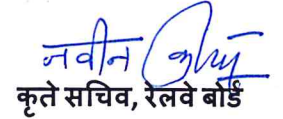 नवीन कुमार
कृते सचिव, रेलवे बोर्ड